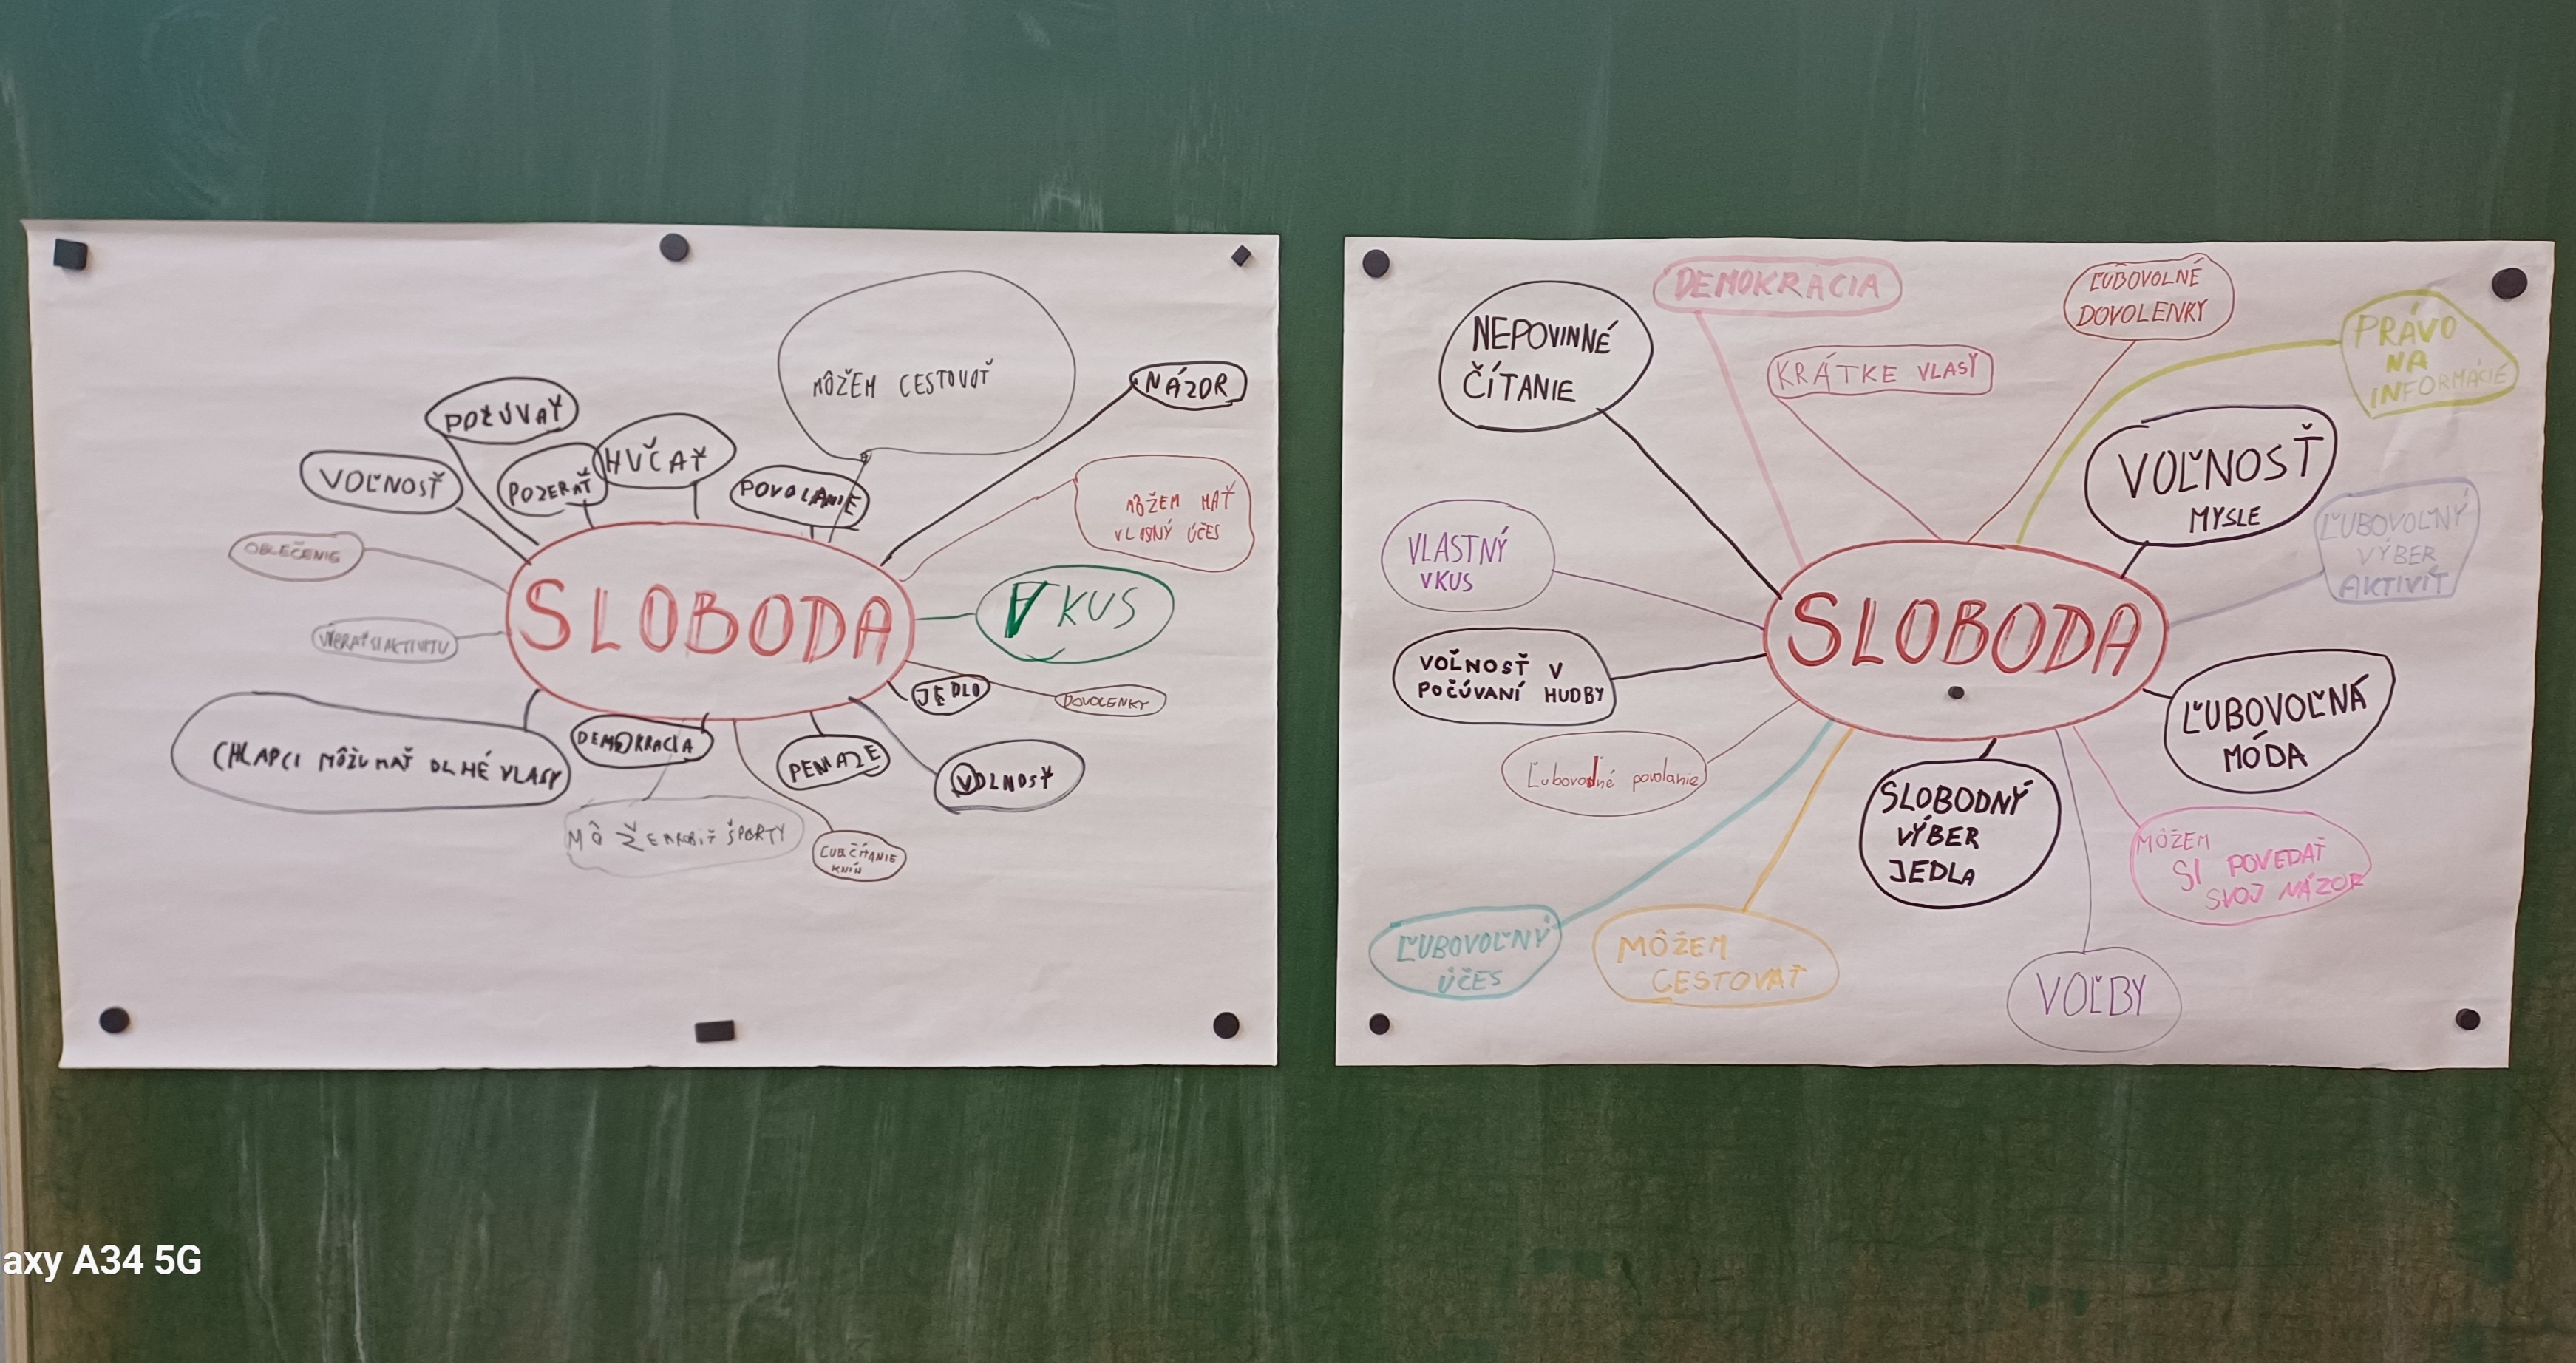 MÔŽEM CESTOVAŤ
NÁZOR
POZÚVAŤ
HVČAŤ
VOĽNOSŤ
POZERAŤ
POVOLANIE
MÔŽEM MAŤ
VLASNÝ ÚČES
OBLEČENIE
SLOBODA
VKUS
VYBRAŤ SI AKTIVITU
JEDLO
DOVOLENKY
CHLAPCI MÔŽU MAŤ DLHÉ VLASY
DEMOKRACIA
PENIAZE
VOLNOSŤ
ŠPORTY
KNIH
DEMOKRACIA
ĽUBOVOLNÉ
DOVOLENKY
NEPOVINNÉ
ČÍTANIE
KRÁTKE VLASY
PRÁVO
NA
INFORMÁCIE
VOĽNOSŤ
MYSLE
VLASTNÝ
VKUS
ĽUBOVOĽNÝ
VÝBER
AKTIVÍT
SLOBODA
VOĽNOSŤ V
POČÚVANÍ HUDBY
ĽUBOVOĽNÁ
MÓDA
Ľubovolné povolanie
SLOBODNÝ
VÝBER
JEDLA
MÔŽEM
SI POVEDAŤ
SVOJ NÁZOR
ĽUBOVOĽNÝ
ÚČES
MÔŽEM
CESTOVAŤ
VOĽBY
axy A34 5G